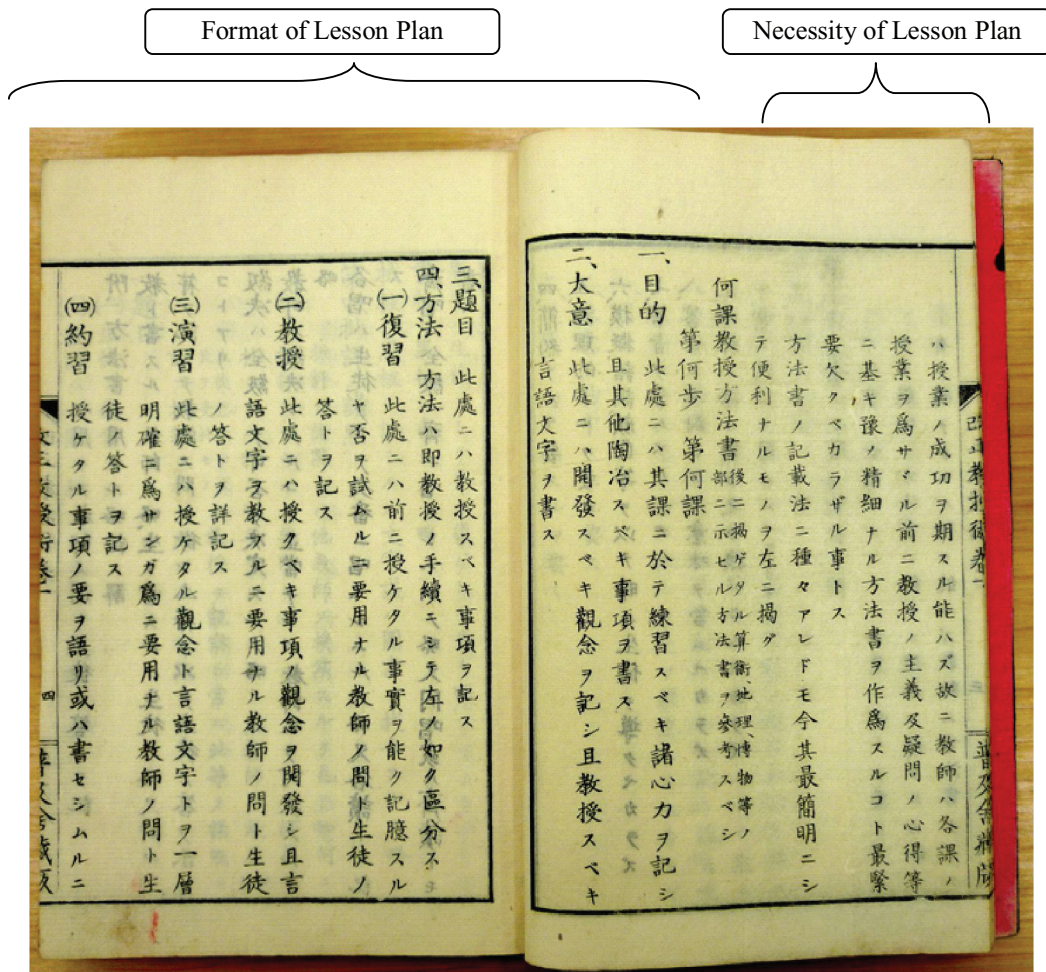 Format of Lesson Plan
Necessity of Lesson Plan
ハ授業ノ成功ヲ期スル能ハズ故ニ教師ハ各課ノ
授業ヲ爲サヾル前ニ教授ノ主義及疑問ノ心得等
ニ基キ豫ノ精細ナル方法書ヲ作爲スルコト最緊
要欠クベカラザル事トス
方法書ノ記載法ニ種々アレドモ今其最簡明ニシ
テ便利ナルモノヲ左ニ揭グ
何課教授方法書 後ニ揭ゲタル算術、地理、博物等ノ
部ニ示セル方法書ヲ參考スベシ
第何步 第何課
一、目的 此處ニハ其課ニ於テ練習スベキ諸心力ヲ記シ
且其他陶冶スベキ事項ヲ書ス
二、大意 此處ニハ開發スベキ觀念ヲ記シ且教授スベキ
言語文字ヲ書ス
三、題目 此處ニハ教授スベキ事項ヲ記ス
四、方法 方法ハ即教授ノ手續ニシテ左ノ如ク區分ス
㈠復習 此處ニハ前ニ授ケタル事實ヲ能ク記臆スル
ヤ否ヲ試ムルニ要用ナル教師ノ問ト生徒ノ
答トヲ記ス
㈡教授 此處ニハ授クベキ事項ノ觀念ヲ開發シ且言
語文字ヲ教フルニ要用ナル教師ノ問ト生徒
ノ答トヲ詳記ス
㈢演習 此處ニハ授ケタル觀念ト言語文字トヲ一層
明確ニ爲サンガ爲ニ要用ナル教師ノ問ト生
徒ノ答トヲ記ス
㈣約習 授ケタル事項ノ要ヲ語リ或ハ書セシムルニ
四